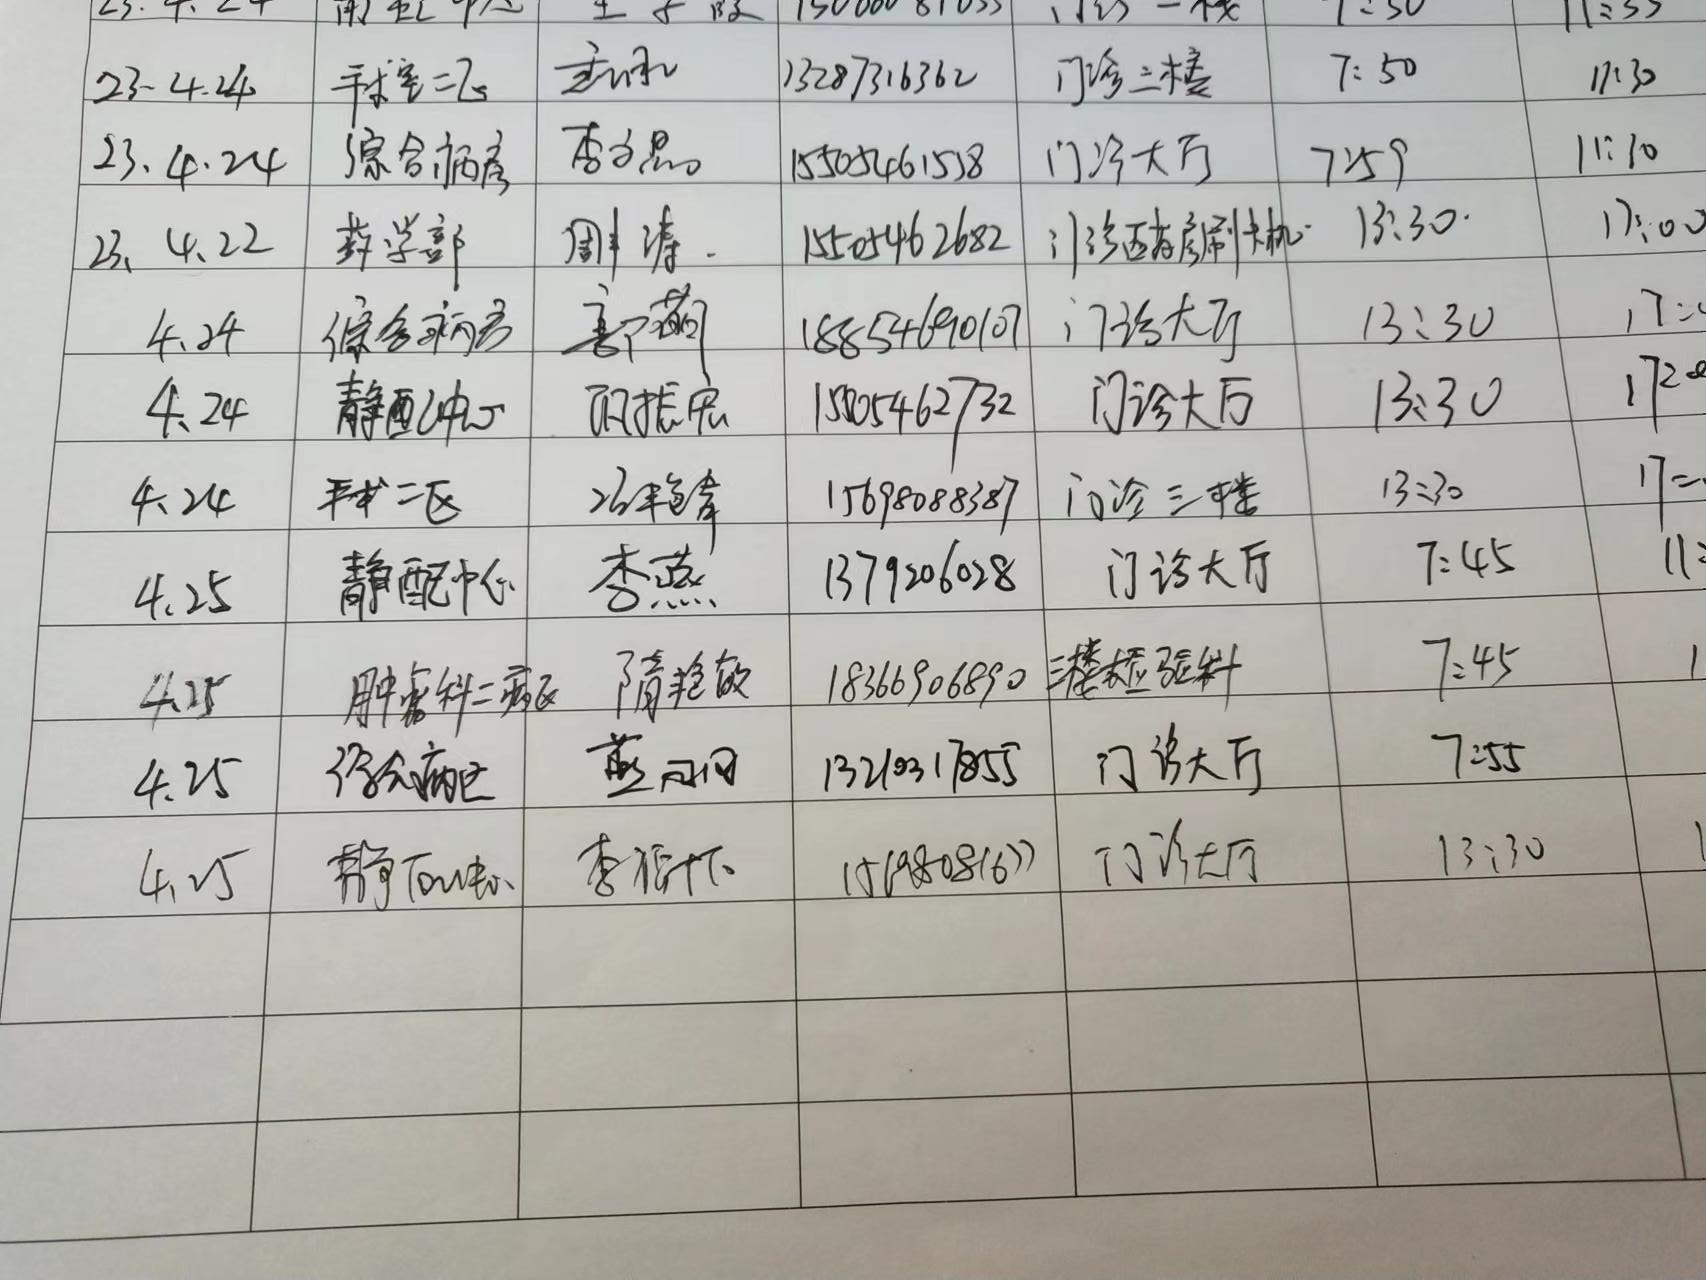 23.4.24 门诊二楼 7:50 11:35
23-4.24 手术室二区 13287316362 门诊三楼 7:50 11:30
23.4.24 综合病房 李 15505461538 门诊大厅 7:59 11:30
23.4.22 药学部 周涛 15505462682 门诊西药房刷卡机 13:30 17:00
4.24 综合病房 郭萌 18854690107 门诊大厅 13:30 17:
4.24 静配中心 振宏 15505462732 门诊大厅 13:30 17:
4.24 手术二区 15698088387 门诊三楼 13:30 17:
4.25 静配中心 李燕 1379206028 门诊大厅 7:45 11:
4.25 肿瘤科二病区 隋艳敏 18366906890 三楼检验科 7:45 1
4.25 综合病区 燕 13210317855 门诊大厅 7:55
4.25 静配中心 李 15698081677 门诊大厅 13:30 1